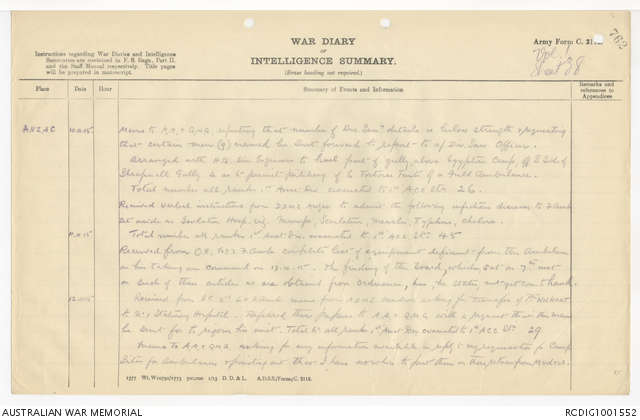 WAR DIARY
or
INTELLIGENCE SUMMARY.
(Erase heading not required.)
Army Form C. 2118.
762
Instructions regarding War Diaries and Intelligence
Summaries are contained in F. S. Regs., Part II.
and the Staff Manual respectively. Title pages
will be prepared in manuscript.
Place Date Hour Summary of Events and Information Remarks and references to Appendices
ANZAC 10.11.15 Memo to A.A. & Q.M.G. reporting that number of Div. San. details is below strength & requesting
that certain men (9) named be sent forward to report to a/ Div. San. Officer.
Arranged with H.Q. Div. Engineers to level part of gully above Egyptian Camp off E. Side of
Shrapnell Gully so as to permit pitching of 6 Tortoise Tents of a Field Ambulance.
Total number all ranks 1st Aust Div evacuated to 1st ACC Stn 26.
Received verbal instructions from DDMS to admit the following infectious diseases to F Amb
viz Mumps, Scarlatina, Measles, Typhus, Cholera.
11.11.15 Total number all ranks 1st Aust. Div. evacuated to 1st A.C.C. Stn. 45
Received from O.C. F Amb complete list of equipment deficient from this Ambulance
on his taking over command on The finding of the Board, which sat on 7th inst
on such of these articles as are obtained from Ordnance, has, he states, not yet come to hand.
12.11.15 Received from memo from ADMS asking for transfer of
to No 1 Stationary Hospital. Referred these papers to A.A. & Q.M.G with a request that this man
be sent for to rejoin his unit. Total No all ranks 1st Aust Div evacuated to 1st ACC Stn 29
Memo to A.A. & Q.M.G. asking for any information available in reply to my requests for Camp
Sites for Ambulances & pointing out that I have nowhere to put them on their return from Mudros.
1577 Wt. W10791/1773 500,000 1/15 D. D. & L. A.D.S.S./Forms/C. 2118.
AUSTRALIAN WAR MEMORIAL
RCDIG1001552